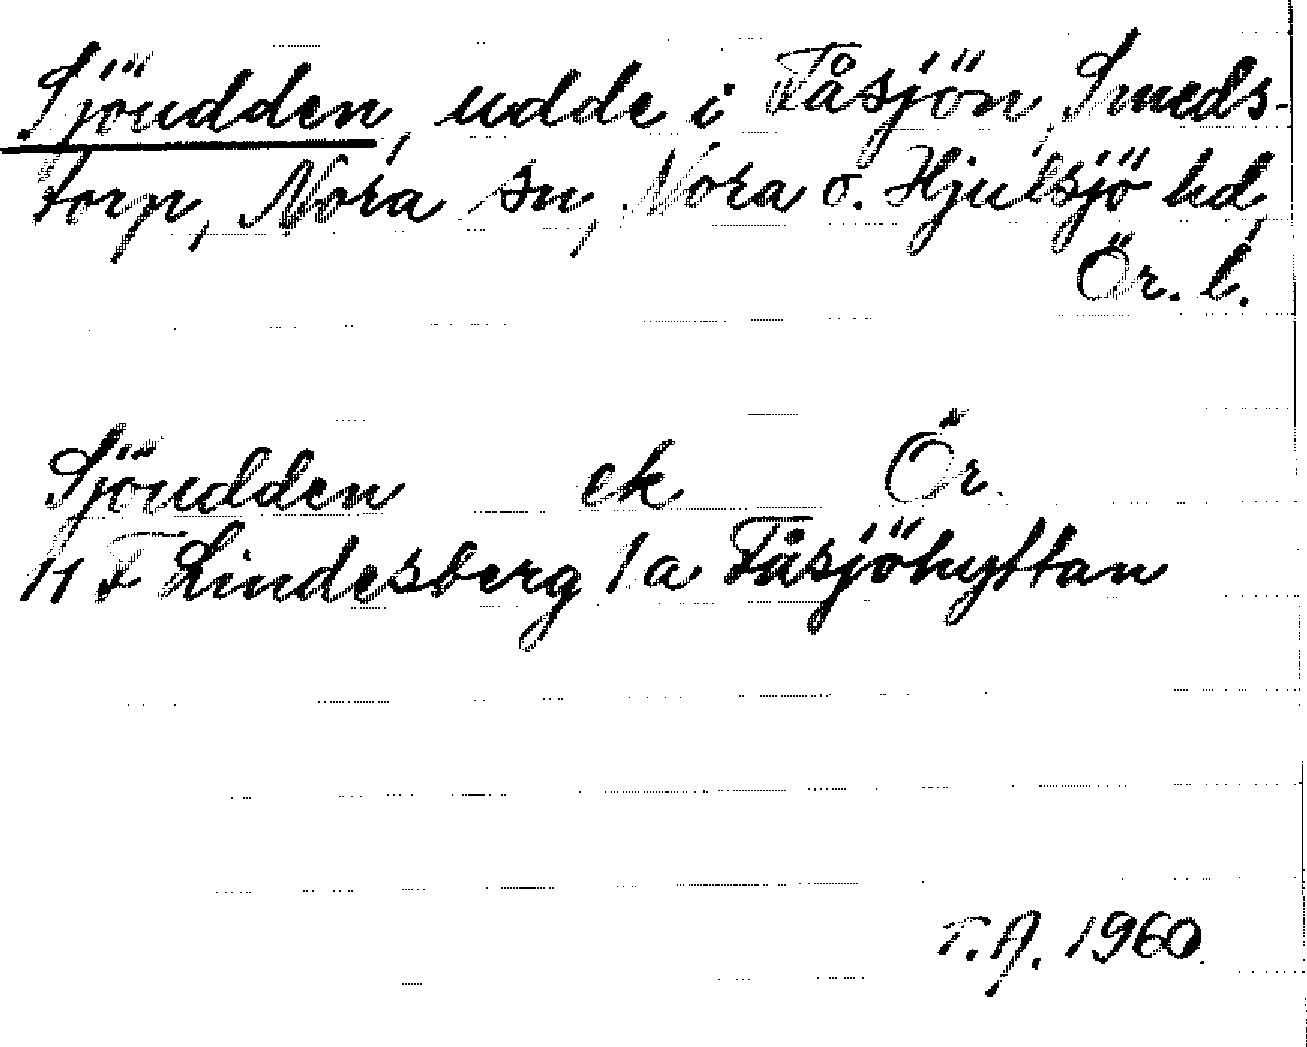 Sjöudden, udde i Fåsjön, Smeds-
torp, Nora sn, Nora o. Hjulsjö hd,
Ör. l.
Sjöudden ek Ör.
11 F Lindesberg 1 a Fåsjöhyttan
T.A. 1960